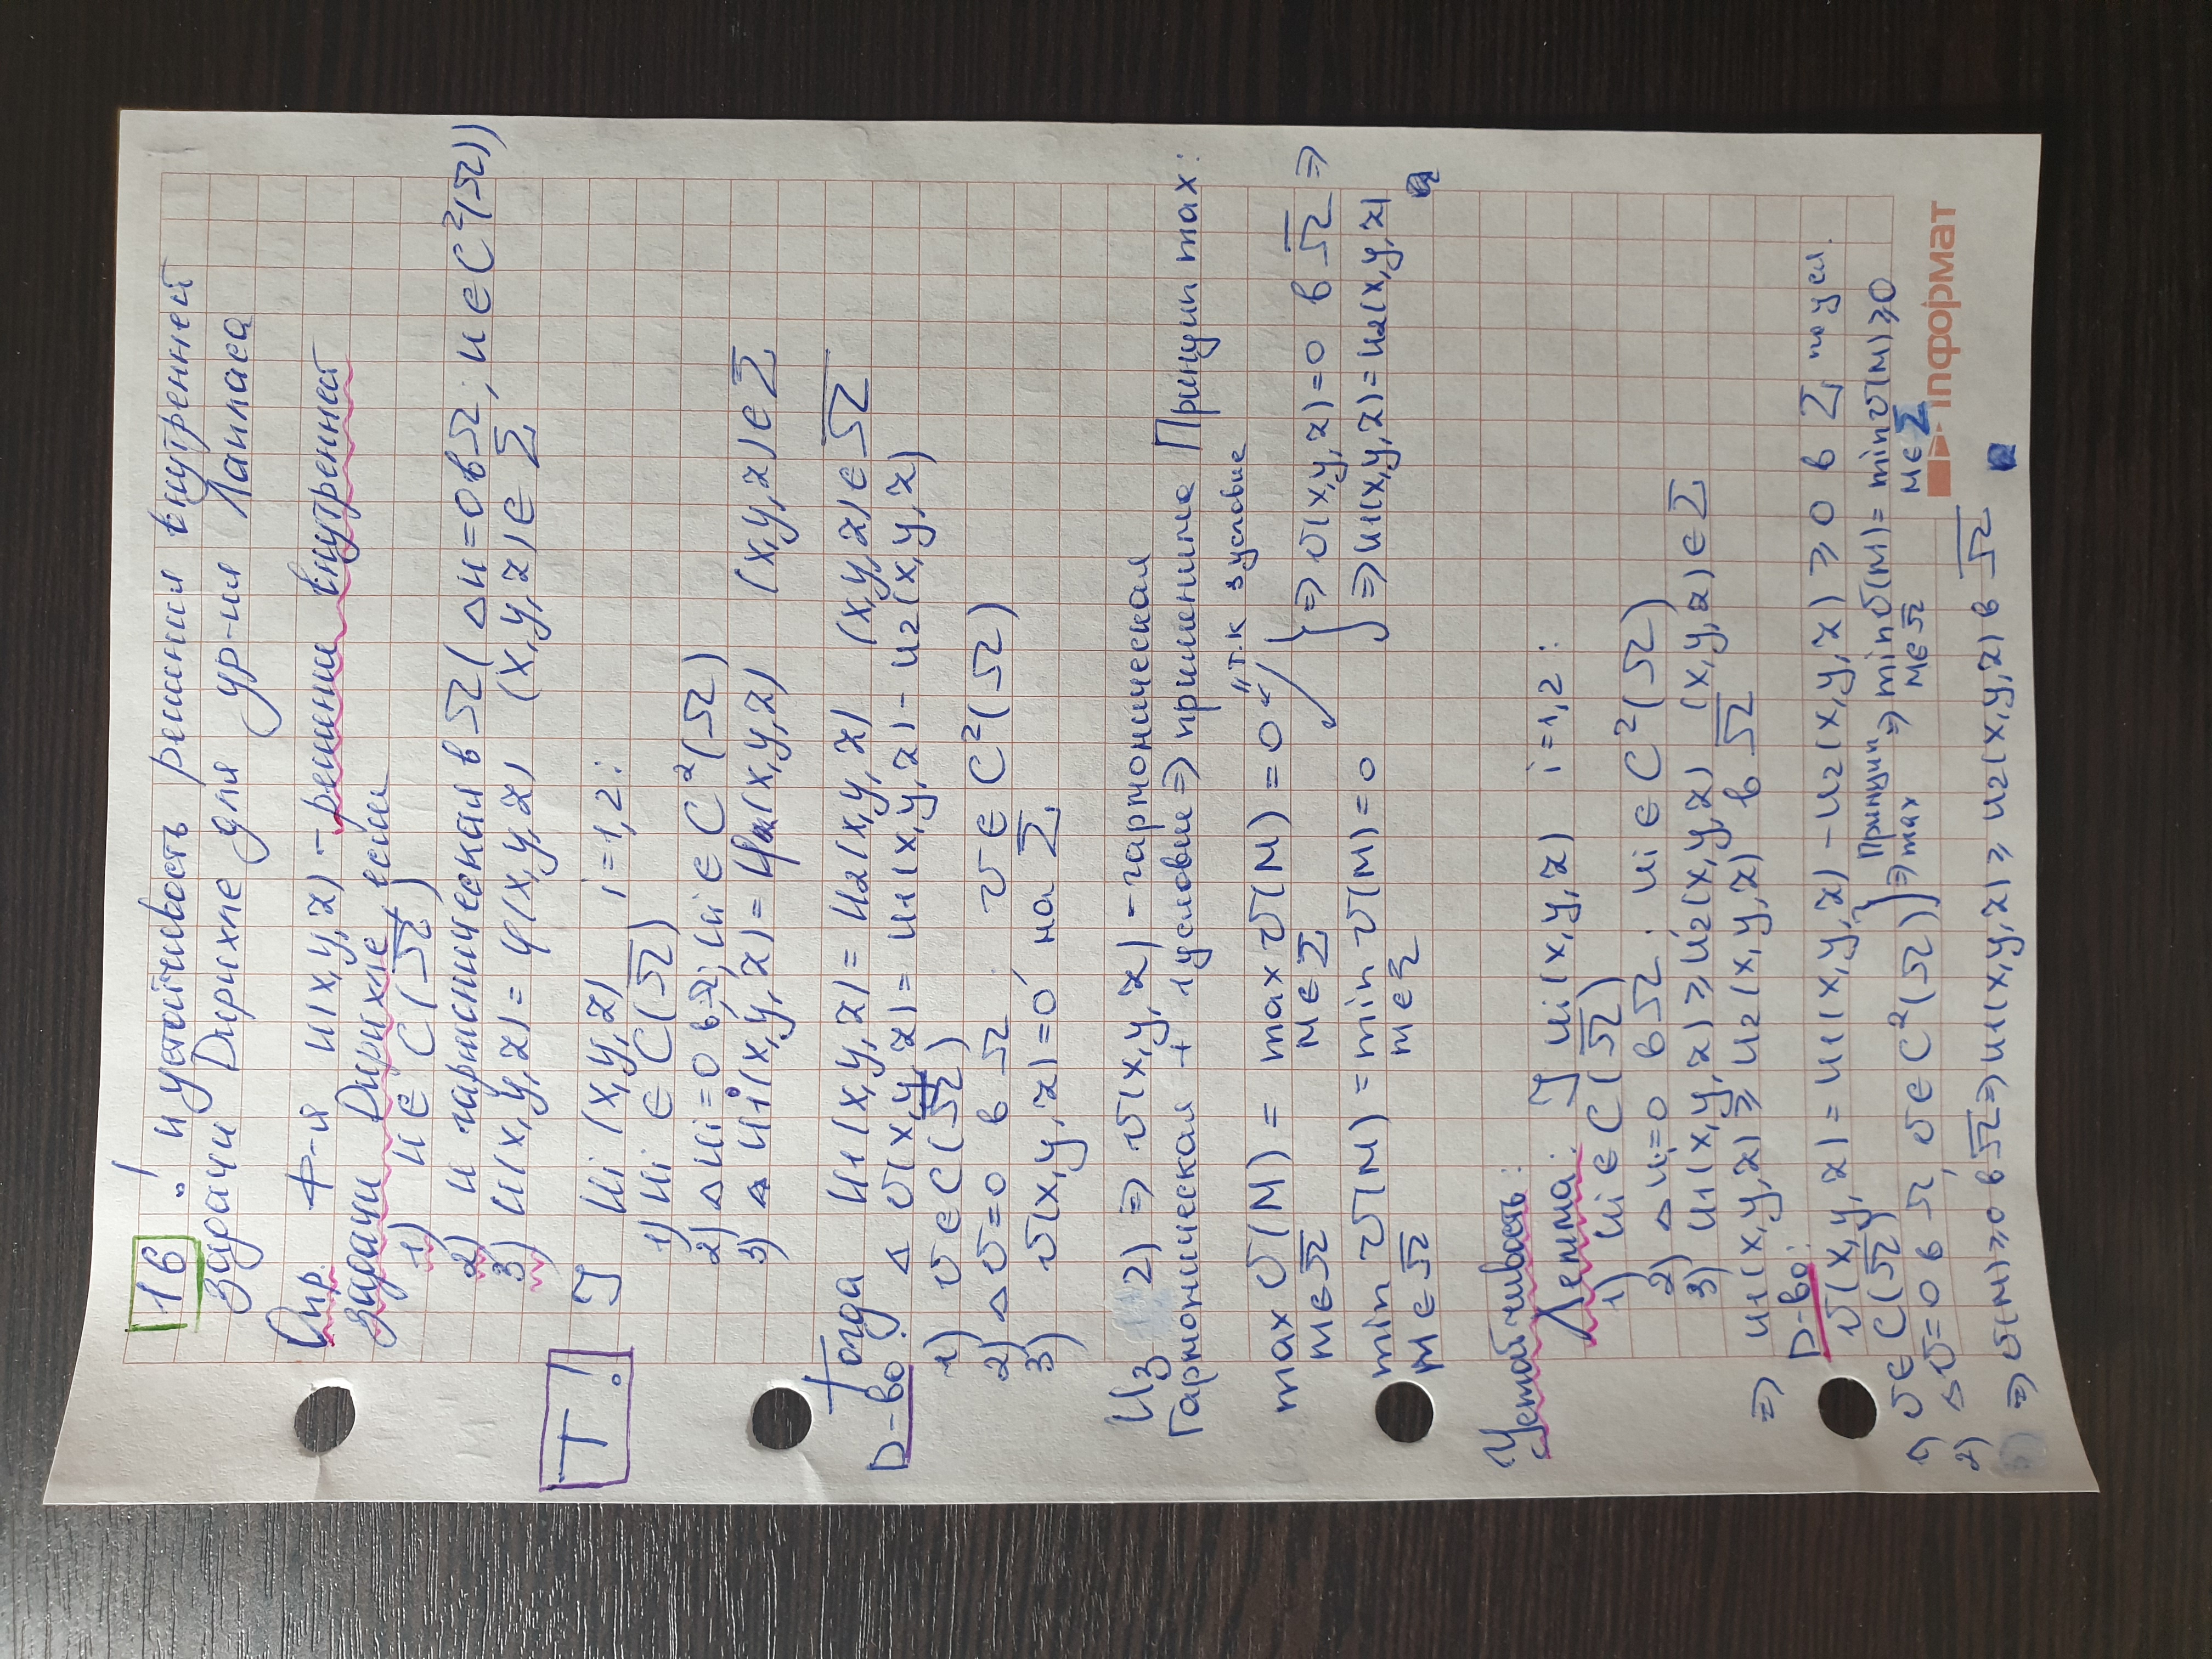 16 ! и устойчивость решения внутренней
задачи Дирихле для ур-ия Лапласа
Опр. Ф-я u(x,y,z) - решение внутренней
задачи Дирихле, если
1) u ∈ C(Ω̅)
2) u гармоническая в Ω (Δu=0 в Ω; u ∈ C²(Ω))
3) u(x,y,z) = φ(x,y,z) (x,y,z) ∈ Σ
Т!
J ui(x,y,z) i=1,2:
1) ui ∈ C(Ω̅)
2) Δui=0 в Ω, ui ∈ C²(Ω)
3) ui(x,y,z) = φ(x,y,z) (x,y,z) ∈ Σ
Тогда u1(x,y,z) = u2(x,y,z) (x,y,z) ∈ Ω̅
D-во: Δ v(x,y,z) = u1(x,y,z) - u2(x,y,z)
1) v ∈ C(Ω̅)
2) Δv=0 в Ω; v ∈ C²(Ω)
3) v(x,y,z)=0, на Σ
Из 2) ⇒ v(x,y,z) - гармоническая
Гармоническая + 1 условие ⇒ применима Принцип max:
max v(M) = max v(M) = 0 "т.к 3 условие
M∈Ω̅ M∈Σ
⇒ v(x,y,z)=0 в Ω̅ ⇒
min v(M) = min v(M) = 0
M∈Ω̅ M∈Σ
⇒ u1(x,y,z) = u2(x,y,z)
Устойчивость:
Лемма: J ui(x,y,z) i=1,2:
1) ui ∈ C(Ω̅)
2) Δui=0 в Ω; ui ∈ C²(Ω)
3) u1(x,y,z) ≥ u2(x,y,z) (x,y,z) ∈ Σ
⇒ u1(x,y,z) ≥ u2(x,y,z) в Ω̅
D-во:
v(x,y,z) = u1(x,y,z) - u2(x,y,z) ≥ 0 в Σ по усл.
1) v ∈ C(Ω̅)
2) Δv=0 в Ω, v ∈ C²(Ω) } ⇒ Принцип max ⇒ min v(M) = min v(M) ≥ 0
M∈Ω̅ M∈Σ
⇒ v(M) ≥ 0 в Ω̅ ⇒ u1(x,y,z) ≥ u2(x,y,z) в Ω̅
inформат